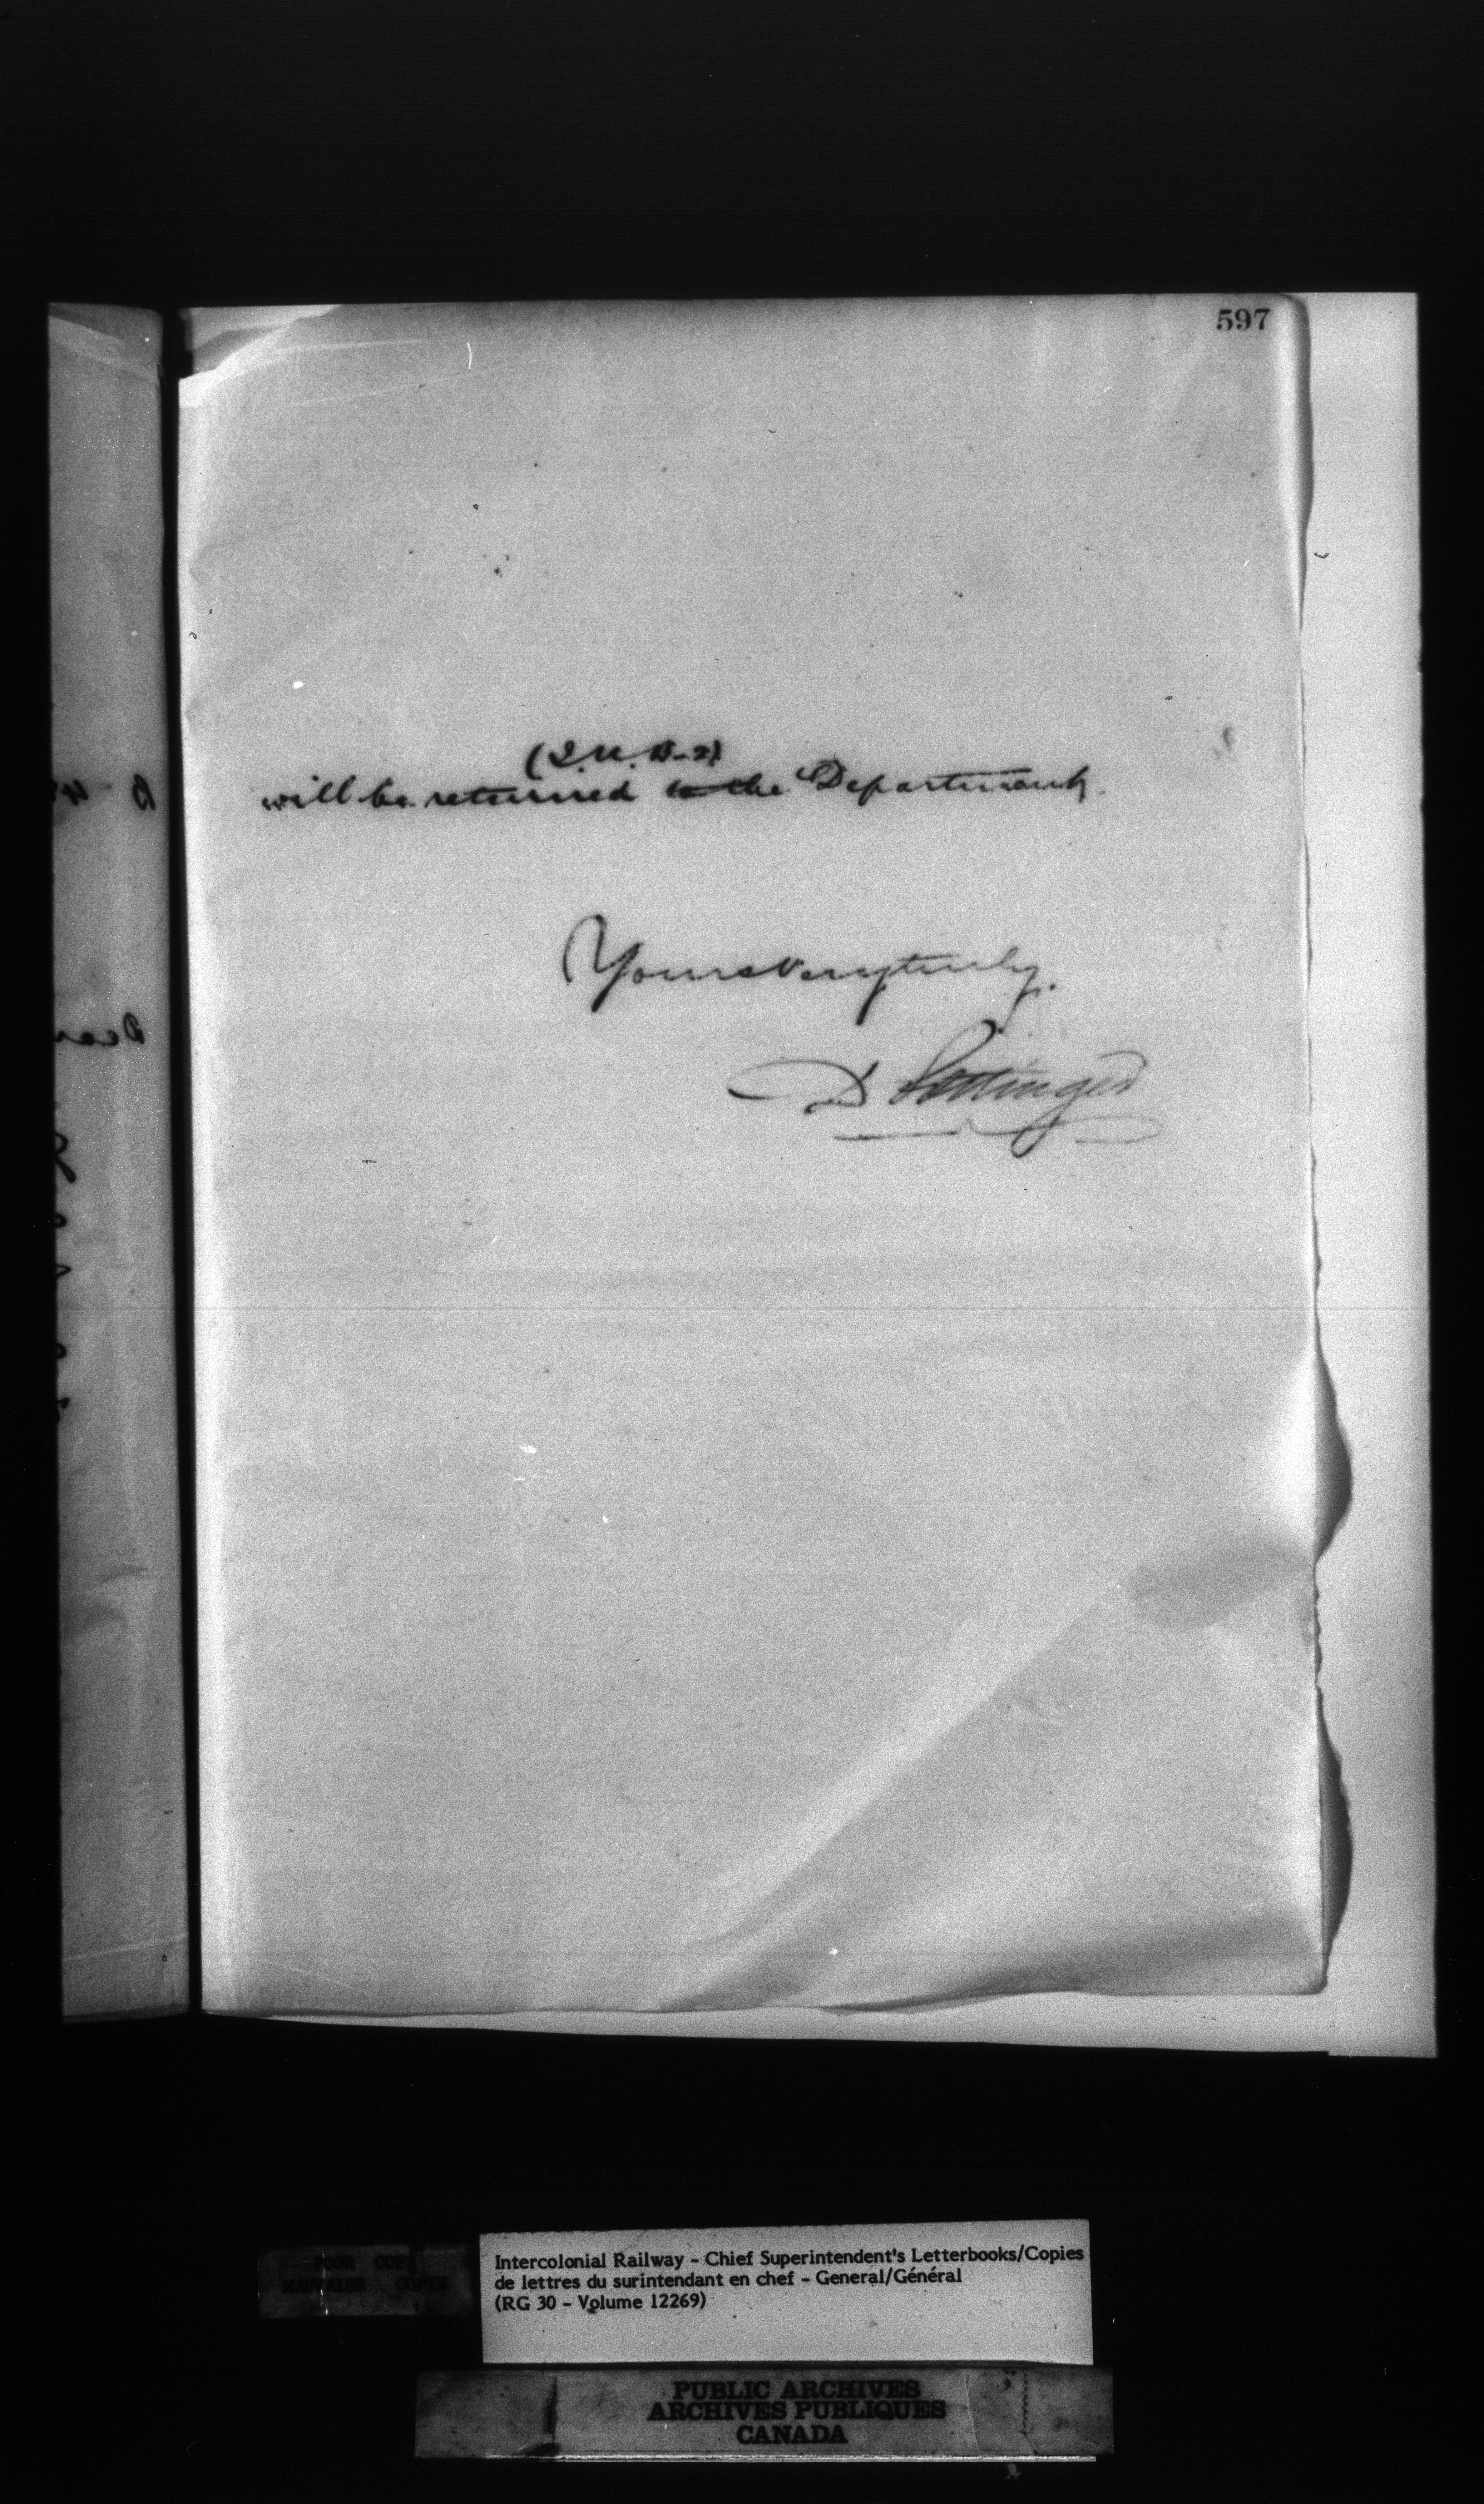 597
will be returned to the Department.
Yours very truly.
D Pottinger
POOR COPY
MAUVAISE COPIE
Intercolonial Railway - Chief Superintendent's Letterbooks/Copies
de lettres du surintendant en chef - General/Général
(RG 30 - Volume 12269)
PUBLIC ARCHIVES
ARCHIVES PUBLIQUES
CANADA